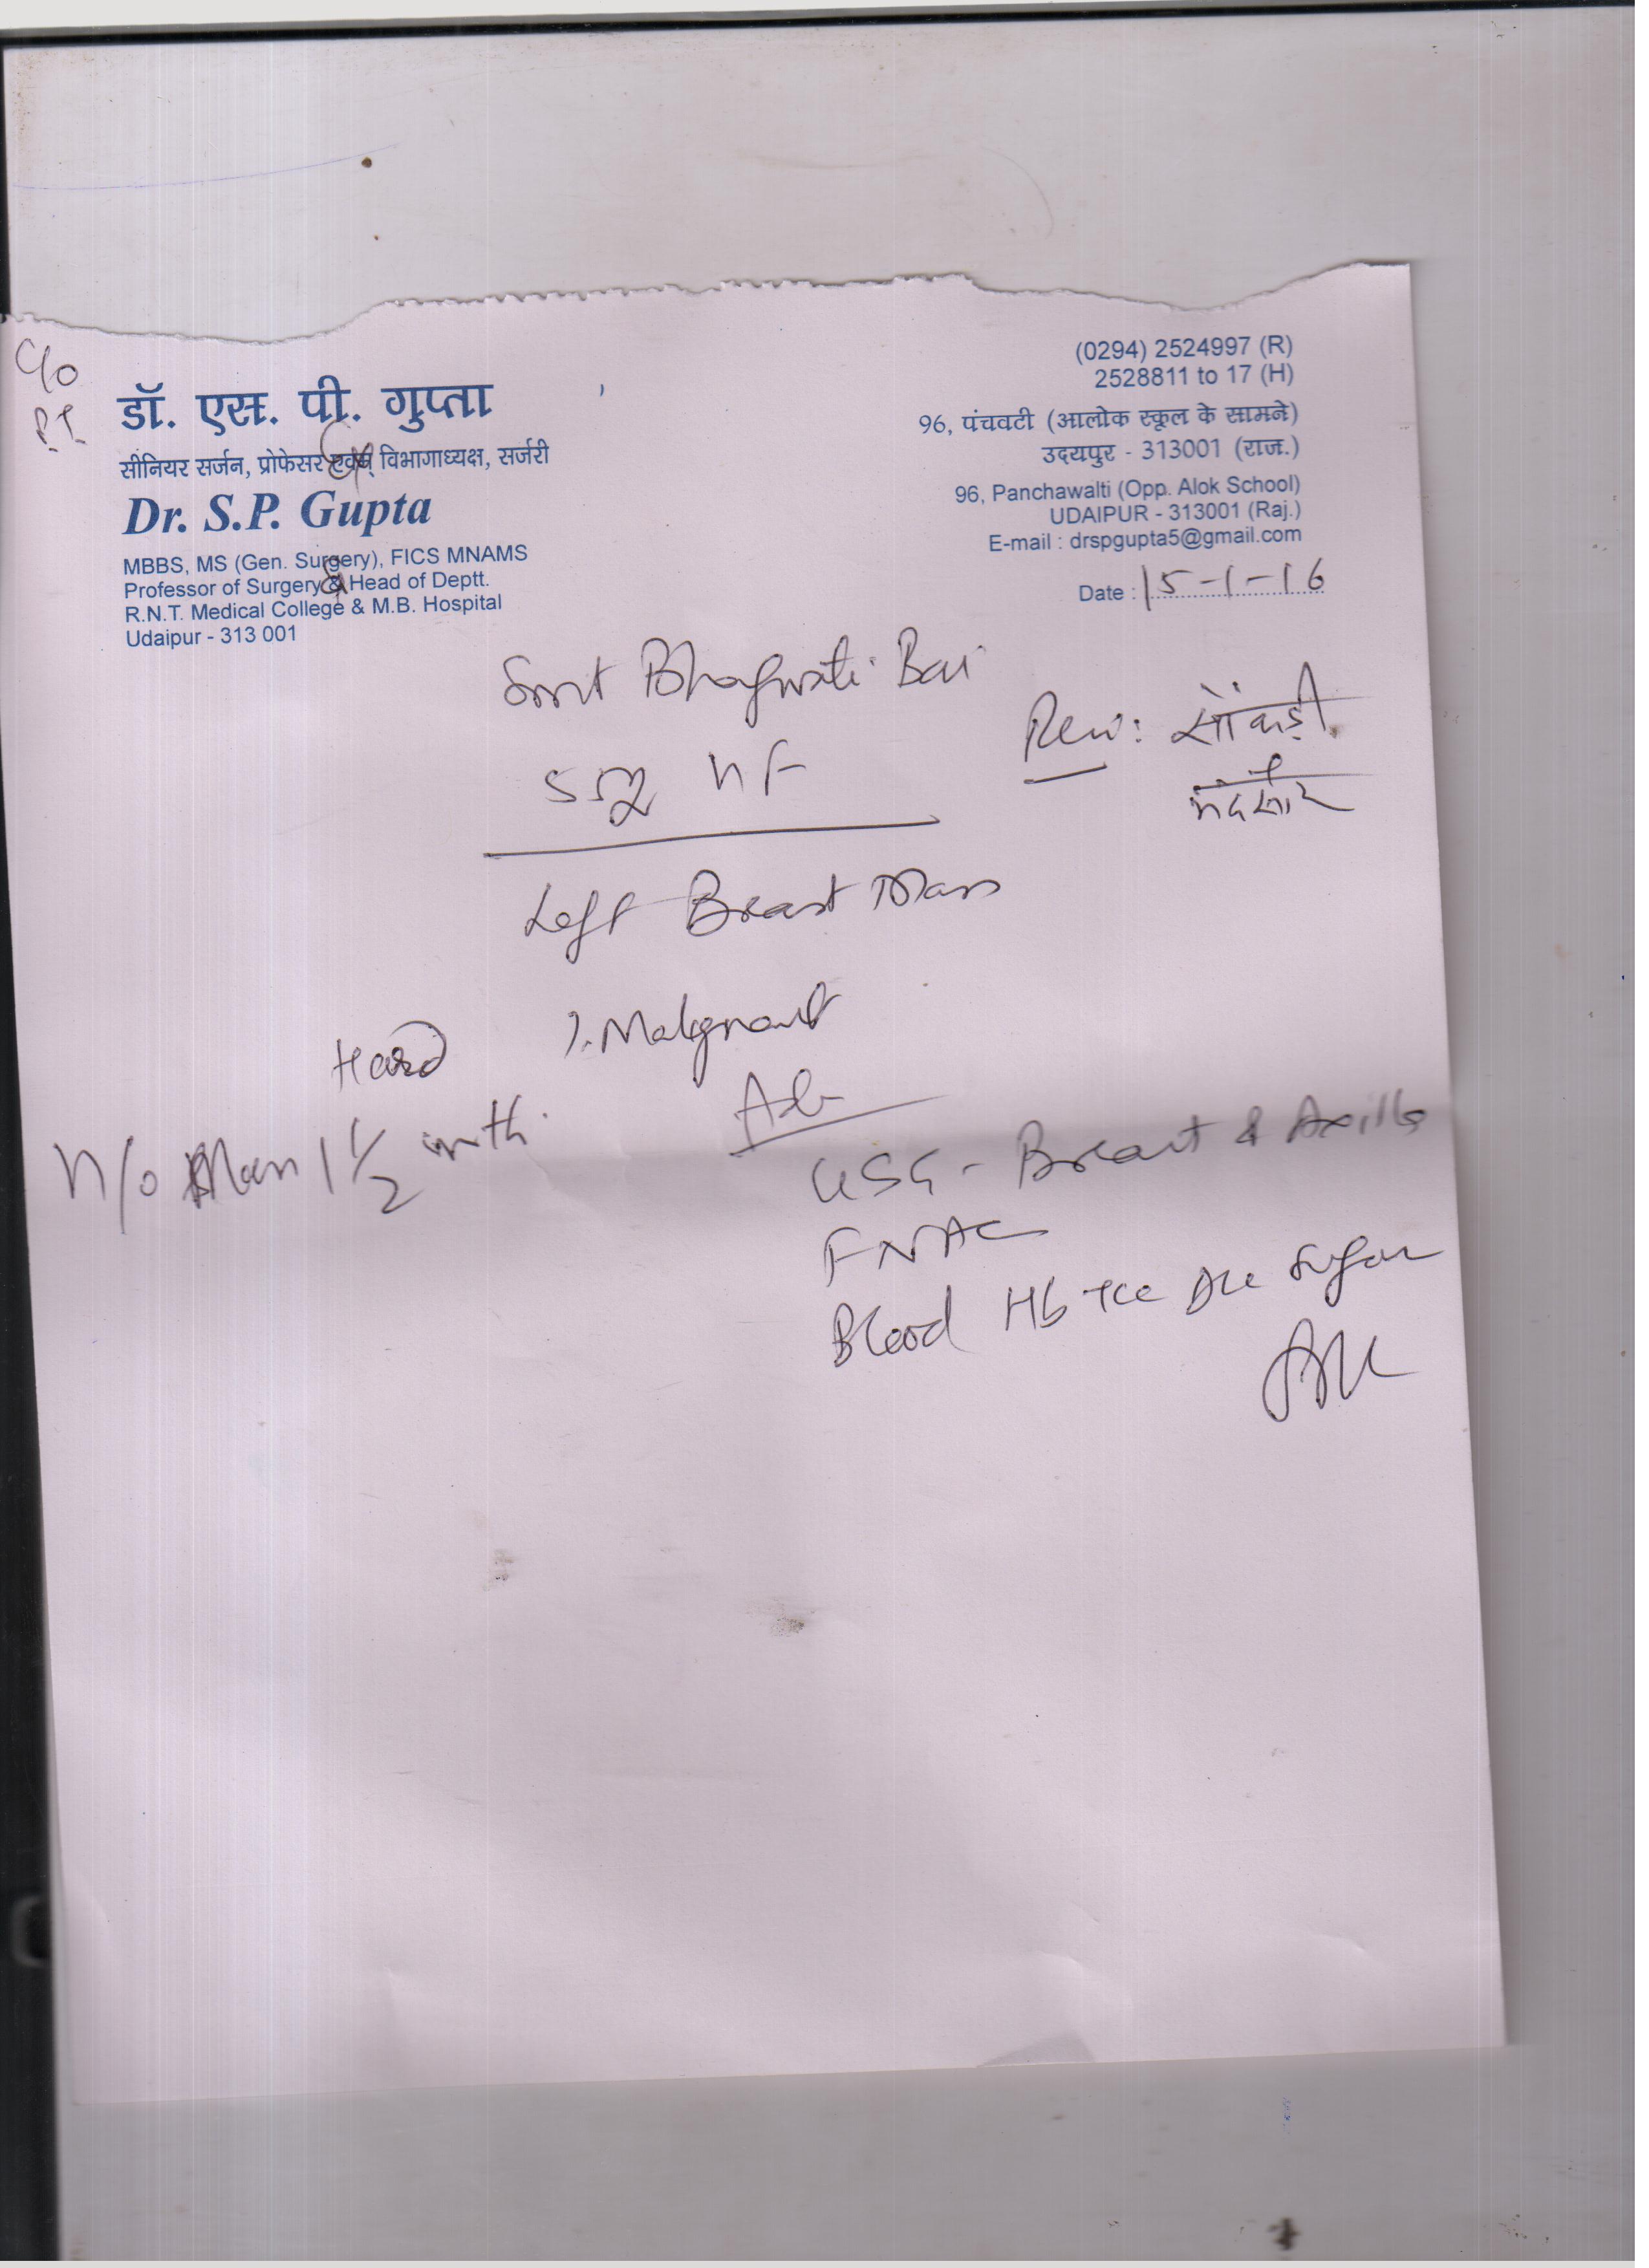 C/o
(0294) 2524997 (R)
2528811 to 17 (H)
डॉ. एस. पी. गुप्ता
सीनियर सर्जन, प्रोफेसर एवम् विभागाध्यक्ष, सर्जरी
Dr. S.P. Gupta
MBBS, MS (Gen. Surgery), FICS MNAMS
Professor of Surgery & Head of Deptt.
R.N.T. Medical College & M.B. Hospital
Udaipur - 313 001
96, पंचवटी (आलोक स्कूल के सामने)
उदयपुर - 313001 (राज.)
96, Panchawalti (Opp. Alok School)
UDAIPUR - 313001 (Raj.)
E-mail : drspgupta5@gmail.com
Date : 15-1-16
Smt Bhagwati Bai
HF
मंदसौर
Left Breast Mass
?. Malignant
Hard
H/o Mass 1 1/2 mth.
Adv
USG - Breast & Axilla
FNAC
Blood Hb TLC DLC Sugar